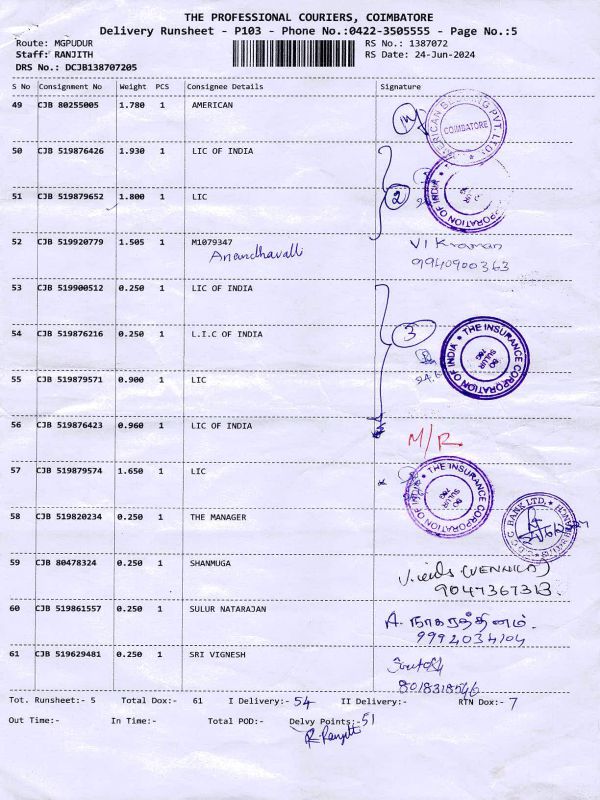 THE PROFESSIONAL COURIERS, COIMBATORE
Delivery Runsheet - P103 - Phone No.:0422-3505555 - Page No.:5
Route: MGPUDUR RS No.: 1387072
Staff: RANJITH RS Date: 24-Jun-2024
DRS No.: DCJB138707205
S No Consignment No Weight PCS Consignee Details Signature
49 CJB 80255005 1.780 1 AMERICAN
COIMBATORE
50 CJB 519876426 1.930 1 LIC OF INDIA
51 CJB 519879652 1.800 1 LIC
2
CORPORATION OF INDIA
52 CJB 519920779 1.505 1 M1079347
Anandhavalli
Vikraman
9940900363
53 CJB 519900512 0.250 1 LIC OF INDIA
54 CJB 519876216 0.250 1 L.I.C OF INDIA
3
THE INSURANCE CORPORATION OF INDIA
SULUR
55 CJB 519879571 0.900 1 LIC
56 CJB 519876423 0.960 1 LIC OF INDIA
M/R
57 CJB 519879574 1.650 1 LIC
THE INSURANCE CORPORATION OF INDIA
SULUR
58 CJB 519820234 0.250 1 THE MANAGER
BANK LTD.
59 CJB 80478324 0.250 1 SHANMUGA
(VENNILA)
9047367313
60 CJB 519861557 0.250 1 SULUR NATARAJAN
A. நாகரத்தினம்.
9994034104
61 CJB 519629481 0.250 1 SRI VIGNESH
8018318546
Tot. Runsheet:- 5 Total Dox:- 61 I Delivery:- 54 II Delivery:- RTN Dox:- 7
Out Time:- In Time:- Total POD:- Delvy Points:- 51
R. Ranjith